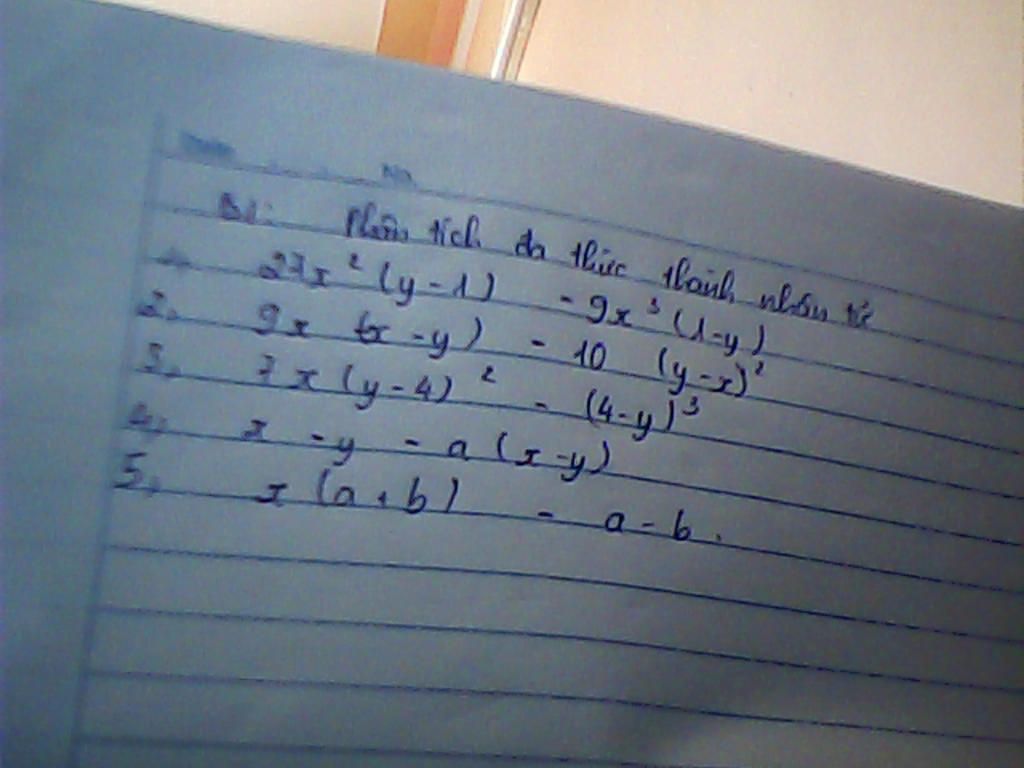 No.
B1: Phân tích đa thức thành nhân tử
1, 27x²(y-1) - 9x³(1-y)
2, 9x (x-y) - 10 (y-x)²
3, 7x(y-4)² - (4-y)³
4, x - y - a(x-y)
5, x(a+b) - a - b.